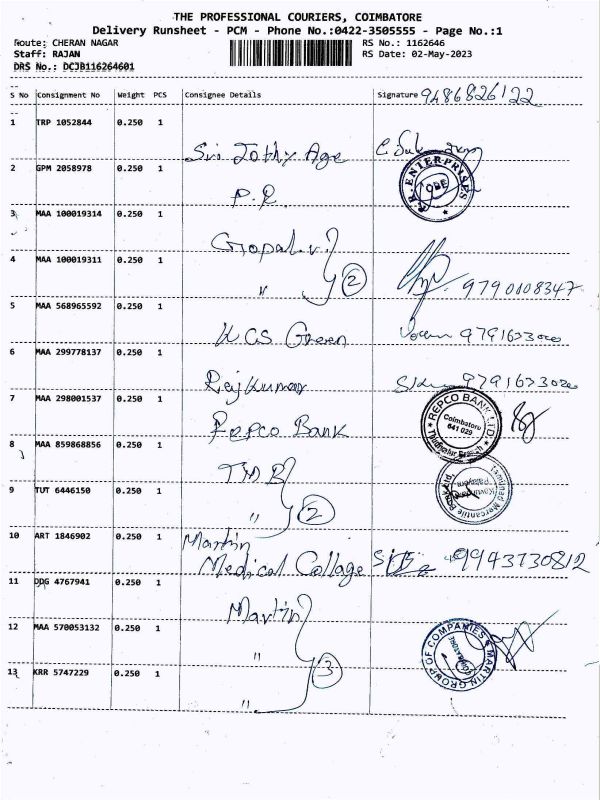 THE PROFESSIONAL COURIERS, COIMBATORE
Delivery Runsheet - PCM - Phone No.:0422-3505555 - Page No.:1
Route: CHERAN NAGAR RS No.: 1162646
Staff: RAJAN RS Date: 02-May-2023
DRS No.: DCJB116264601
S No Consignment No Weight PCS Consignee Details Signature 9486826122
1 TRP 1052844 0.250 1
Sri Jothy Age
2 GPM 2058978 0.250 1
P.R. R.R. ENTERPRISES CBE
3 MAA 100019314 0.250 1
Gopal.v.
4 MAA 100019311 0.250 1
" 2 9790108347
5 MAA 568965592 0.250 1
KGS Green 9791633020
6 MAA 299778137 0.250 1
Rajkumar 9791633020
7 MAA 298001537 0.250 1
Repco Bank REPCO BANK LTD. Coimbatore 641 029 Thudiyalur Branch
8 MAA 859868856 0.250 1
TMB Tamilnad Mercantile Bank Ltd.
9 TUT 6446150 0.250 1
" 2
10 ART 1846902 0.250 1
Martin
Medical Collage 9943730812
11 DDG 4767941 0.250 1
Martin
12 MAA 570053132 0.250 1
" MARTIN GROUP OF COMPANIES COIMBATORE
13 KRR 5747229 0.250 1
" 3